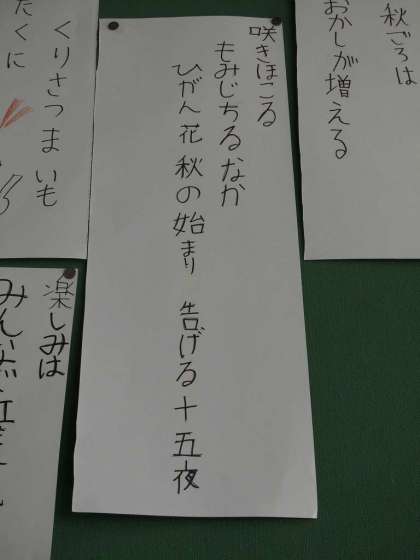 秋ごろは
おかしが増える
咲きほこる
もみじちるなか
ひがん花秋の始まり 告げる十五夜
くりさつまいも
たくに
楽しみは